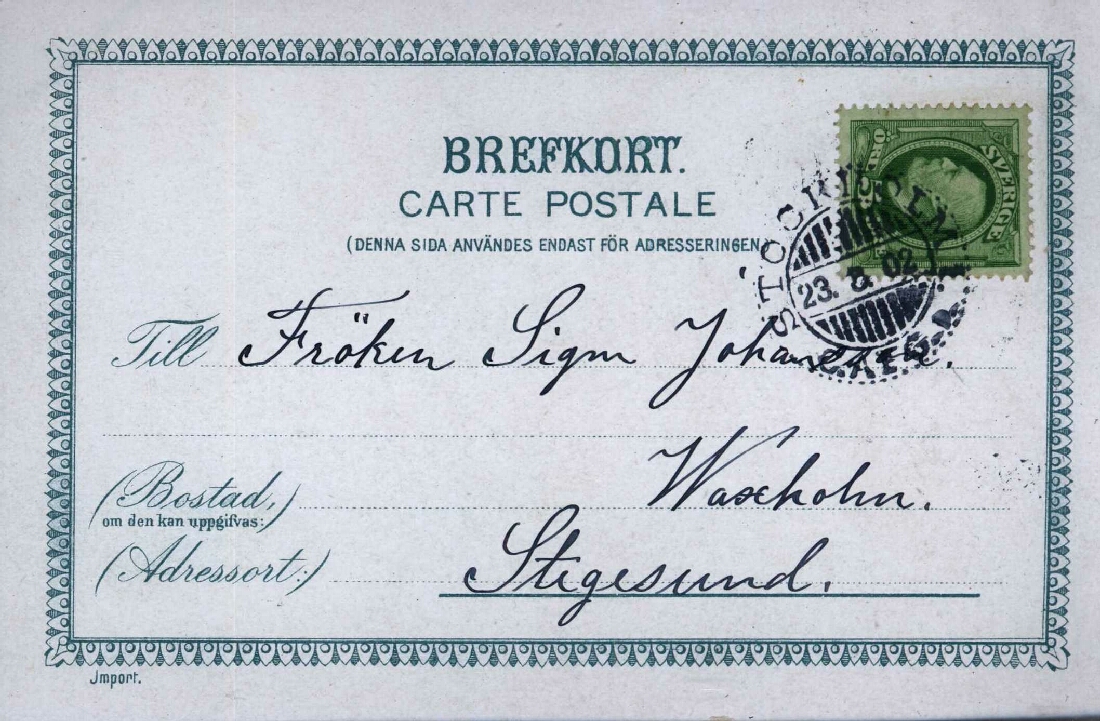 BREFKORT.
CARTE POSTALE
(DENNA SIDA ANVÄNDES ENDAST FÖR ADRESSERINGEN)
SVERIGE
STOCKHOLM
23. 8. 02
Till Fröken Signe Johansson.
(Bostad,
om den kan uppgifvas:)
Waxholm.
(Adressort:)
Stegesund.
Import.